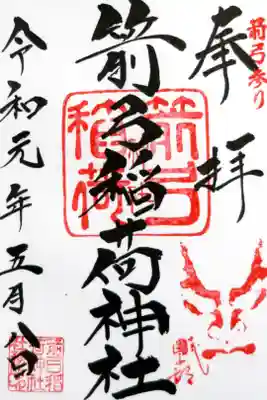 箭弓参り
奉拝
箭弓稲荷神社
箭弓稲荷
令和元年五月八日